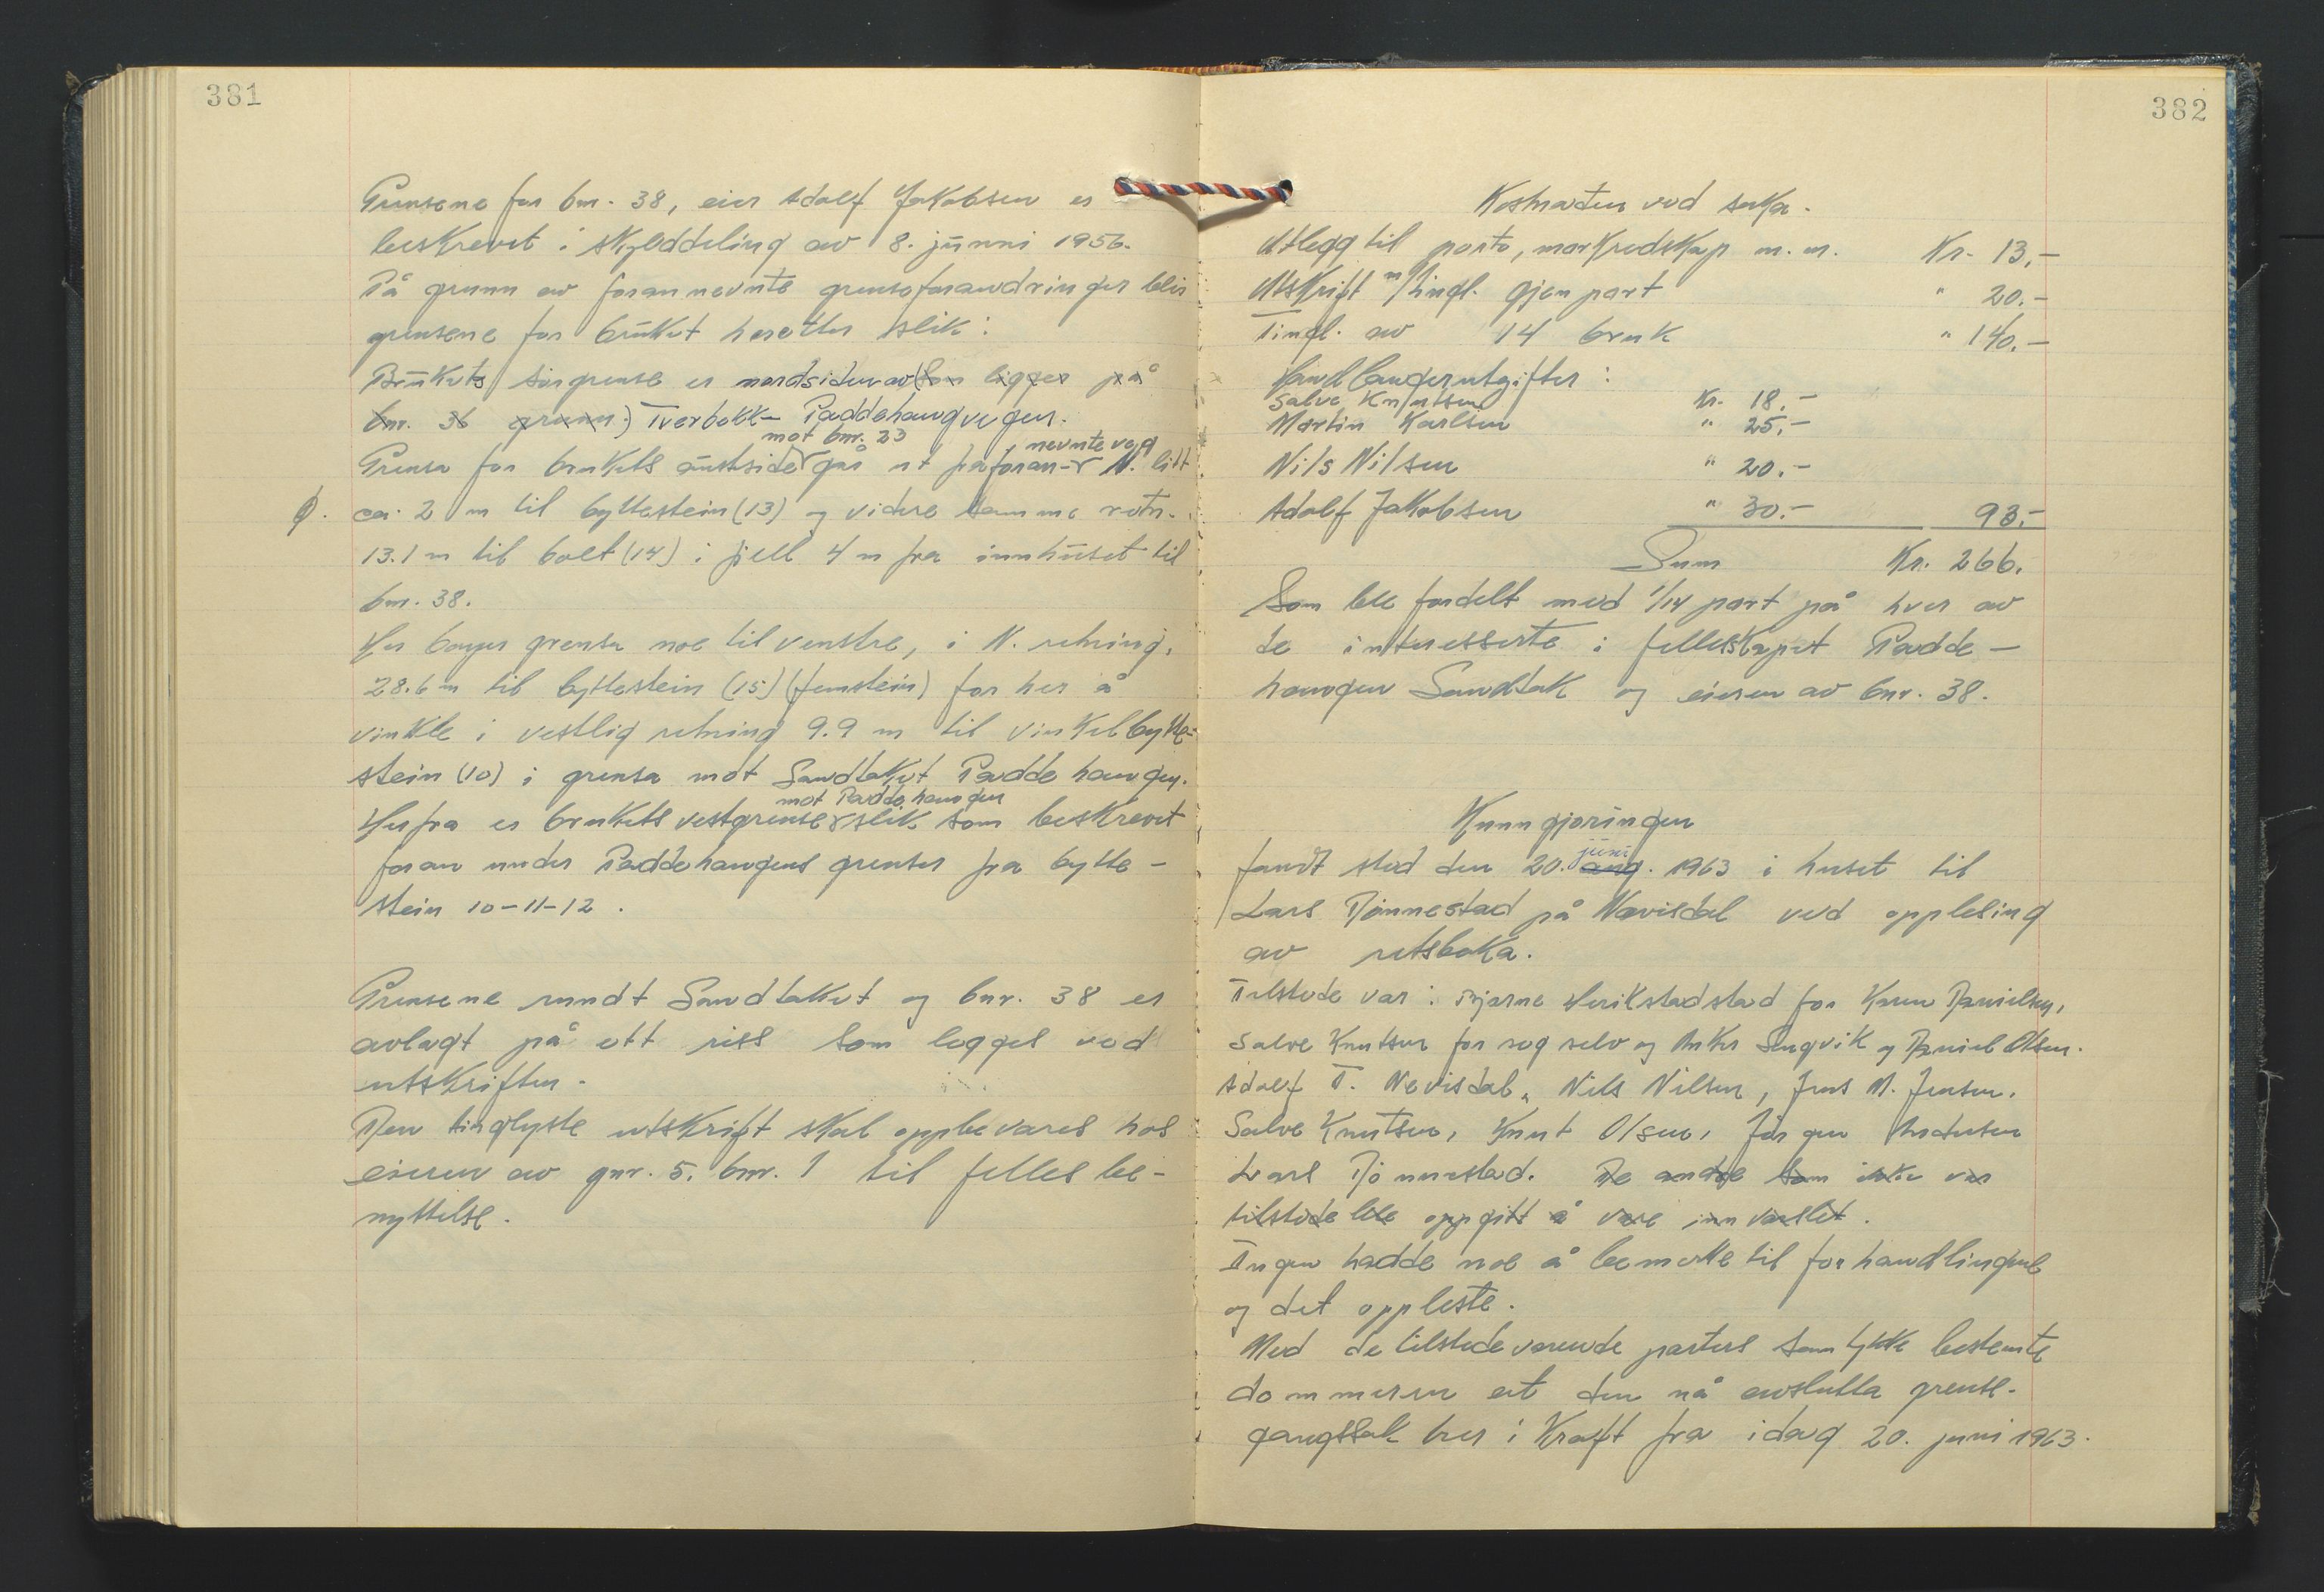 381
Grensene for bnr. 38, eier Adolf Jakobsen er
beskrevet i skylddeling av 8. junni 1956.
På grunn av forannevnte grenseforandringer blir
grensene for bruket heretter slik:
Brukets sørgrense er nordsiden av (som ligger på
bnr. 36 grunn) Tverbekk- Paddehaugvegen.
mot bnr. 23 nevnte veg
Grensa for brukets austside går ut fra foran- N. litt
φ. ca. 2 m til byttestein (13) og videre samme retn.
13.1 m til bolt (14) i fjell 4 m fra innhuset til
bnr. 38.
Her bøyer grensa noe til venstre, i N. retning,
28.6 m til byttestein (15) (femstein) for her å
vinkle i vestlig retning 9.9 m til vinkelbytte-
stein (10) i grensa mot Sandtaket Paddehaugen.
mot Paddehaugen
Herfra er brukets vestgrense slik som beskrevet
foran under Paddehaugens grenser fra bytte-
stein 10-11-12.
Grensene rundt Sandtaket og bnr. 38 er
avlagt på ett riss som legges ved
utskriften.
Den tinglyste utskrift skal oppbevares hos
eieren av gnr. 5, bnr. 1 til felles be-
nyttelse.
382
Kostnaden ved saka.
Utlegg til porto, markredskap m.m. Kr. 13,-
Utskrift m/tingl. gjenpart " 20.-
Tingl. av 14 bruk " 140.-
Handlangerutgifter:
Salve Knutsen Kr. 18.-
Martin Karlsen " 25,-
Nils Nilsen " 20.-
Adolf Jakobsen " 30.- 93,-
Sum Kr. 266.
Som ble fordelt med 1/14 part på hver av
de interesserte i felleskapet Padde-
haugen Sandtak og eieren av bnr. 38.
Kunngjøringen
juni
fandt sted den 20. aug. 1963 i huset til
Lars Dønnestad på Nævisdal ved opplesing
av retsboka.
Tilstede var: Bjarne Herikstadstad for Karen Danielsen,
Salve Knutsen for seg selv og Anker Lingvik og Daniel Olsen.
Adolf T. Nevisdal, Nils Nilsen, Jens M. Jensen.
Salve Knutsen, Knut Olsen, Jørgen Andersen
Lars Dønnestad. De andre som ikke var
tilstede ble oppgitt å være innvarslet.
Ingen hadde noe å bemerke til forhandlingene
og det oppleste.
Med de tilstedeværende parters samtykke bestemte
dommeren at den nå avslutta grense-
gangssak trer i kraft fra idag 20. juni 1963.